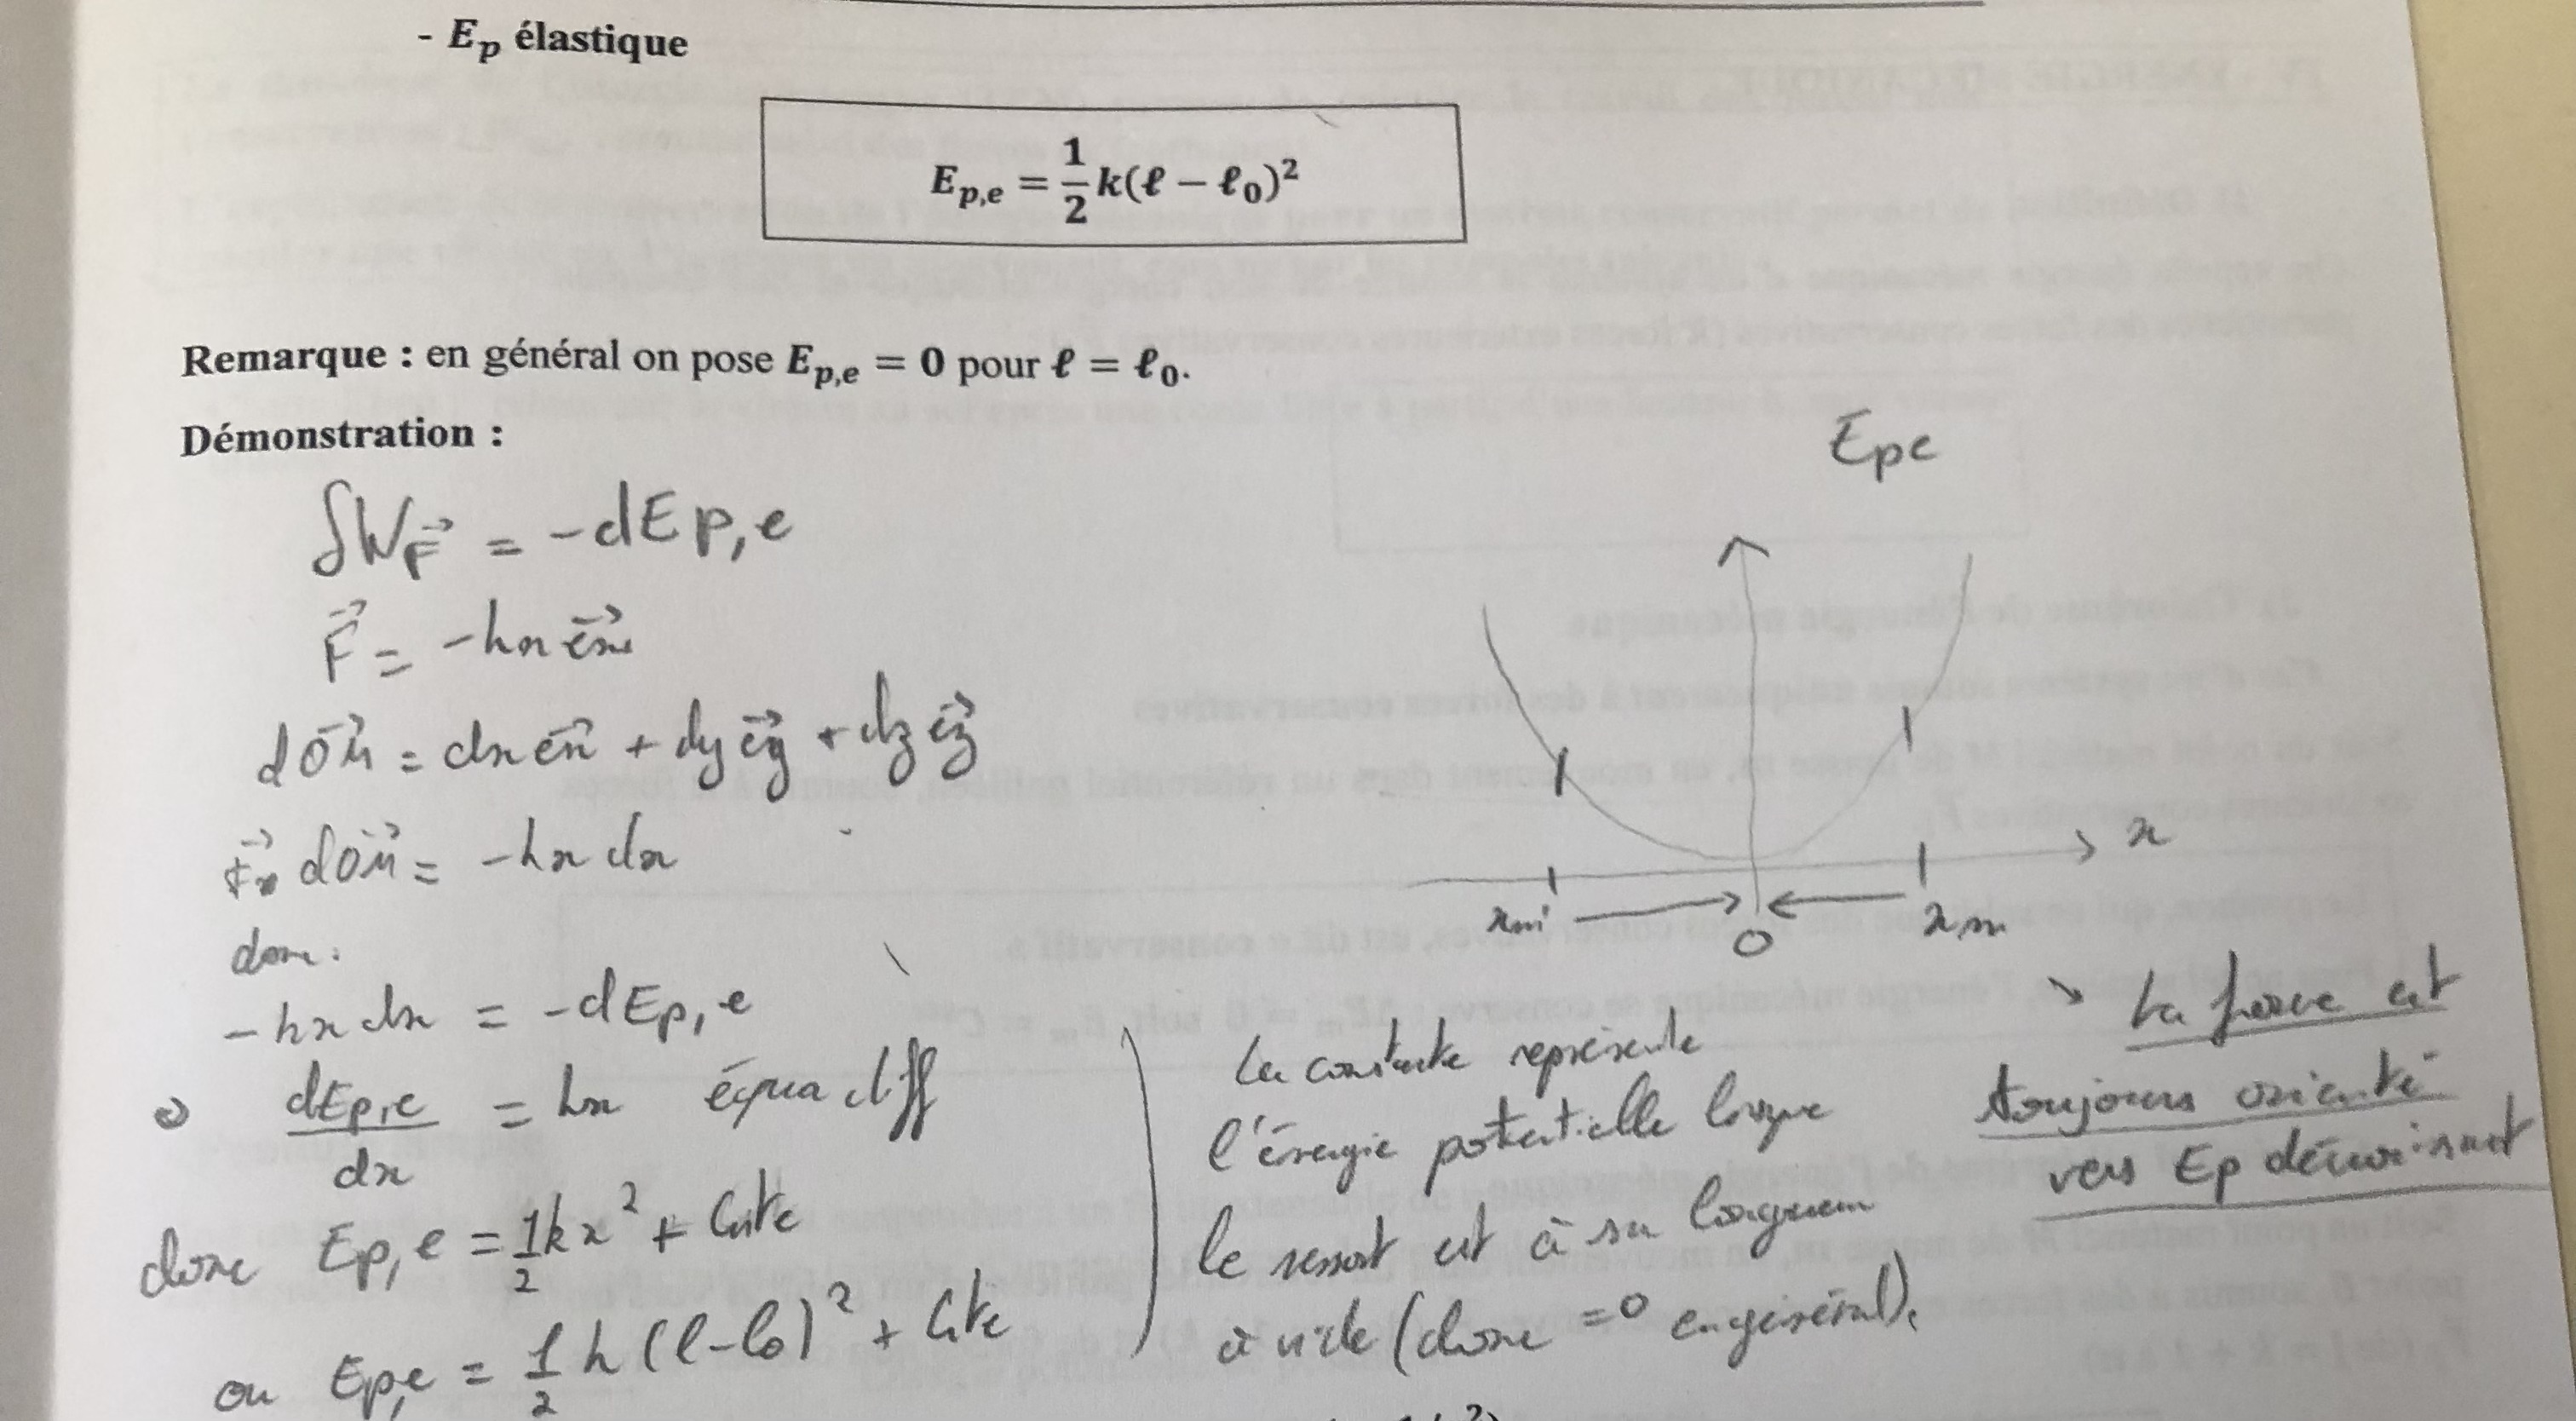 - Ep élastique
Ep,e = 1/2 k(ℓ − ℓ0)²
Remarque : en général on pose Ep,e = 0 pour ℓ = ℓ0.
Démonstration :
δW F⃗ = -dEp,e
F⃗ = -kx e⃗x
dOM⃗ = dx e⃗x + dy e⃗y + dz e⃗z
F⃗. dOM⃗ = -kx dx
donc:
-kx dx = -dEp,e
⇒ dEp,e/dx = kx équa diff
donc Ep,e = 1/2 kx² + Cste
ou Ep,e = 1/2 k (l-l0)² + Cste
Epe
x
xm' O xm
La constante représente
l'énergie potentielle lorsque
le ressort est à sa longueur
à vide (donc =0 en général).
↘ La force est
toujours orienté
vers Ep décroissant